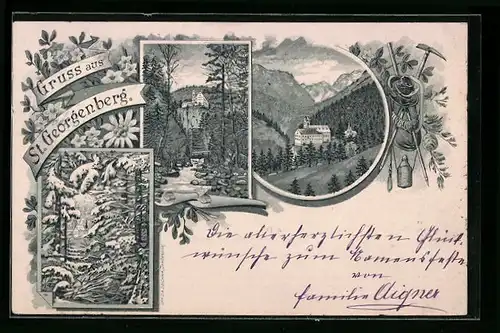 Gruss aus
St. Georgenberg.
Die allerherzlichsten Glück-
wünsche zum Namensfeste
von
Familie Aigner